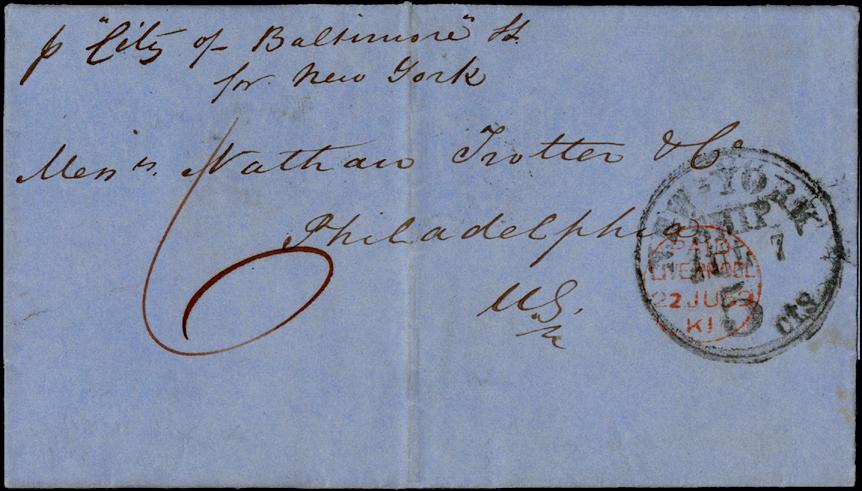 p "City of Baltimore" St
for New York
Messrs. Nathan Trotter & Co
Philadelphia
U.S.
6
NEW-YORK
SHIP
7
5
cts
PAID
LIVERPOOL
22 JU
KI